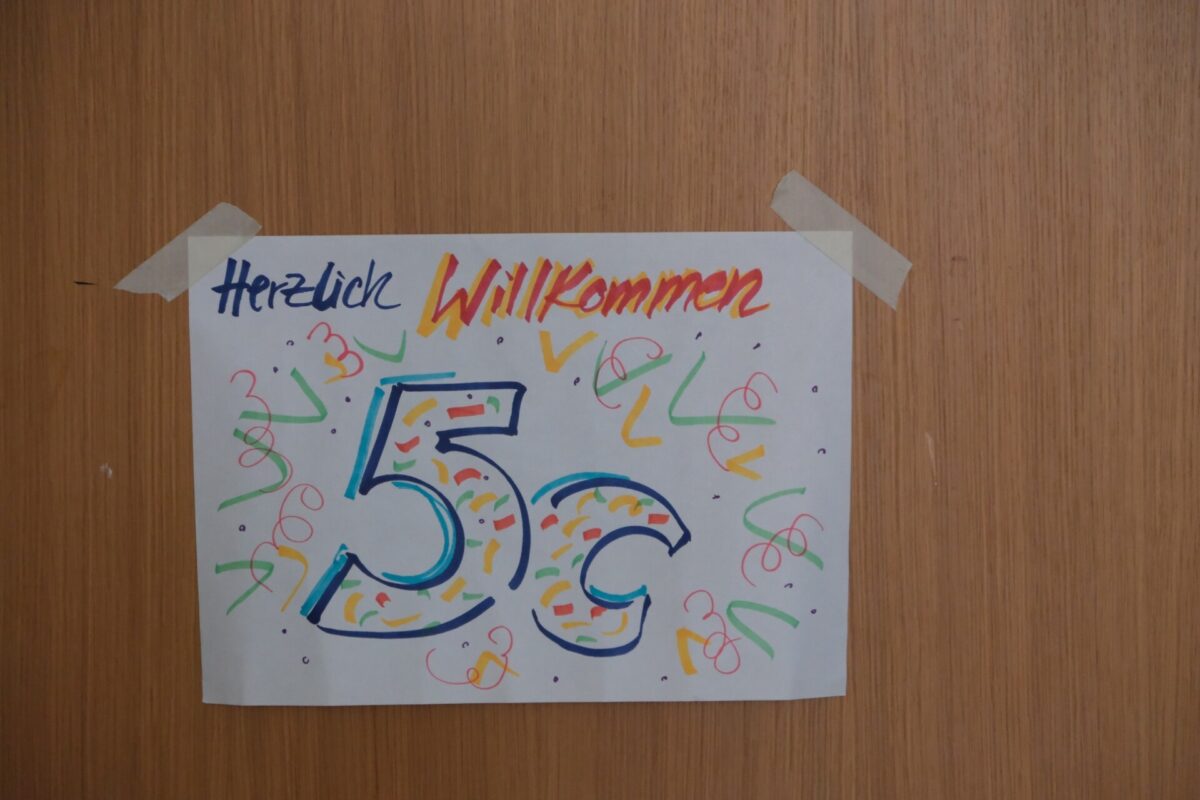 Herzlich Willkommen
5c